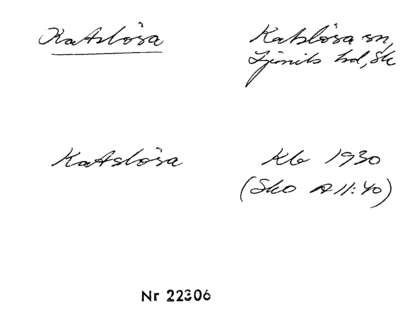 Katslösa Katslösa sn,
Ljunits hd, Sk
Katslösa Kb 1930
(Sko A II:40)
Nr 22306